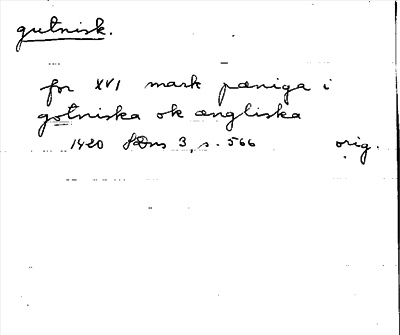 gutnisk.
for XVI mark pæniga i
gotniska ok ængliska
1420 SDns 3, s. 566 orig.